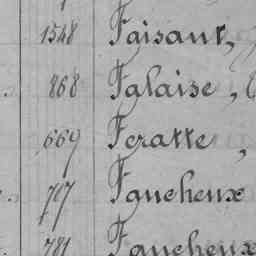 1548 Faisant,
868 Falaise,
669 Feratte,
707 Faucheux
781 Faucheux